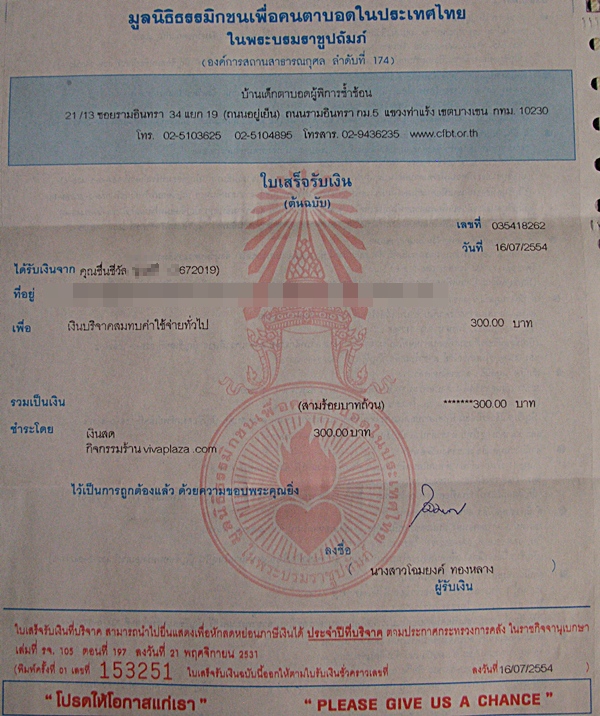 มูลนิธิธรรมิกชนเพื่อคนตาบอดในประเทศไทย
ในพระบรมราชูปถัมภ์
(องค์การสถานสาธารณกุศล ลำดับที่ 174)
บ้านเด็กตาบอดผู้พิการซ้ำซ้อน
21/13 ซอยรามอินทรา 34 แยก 19 (ถนนอยู่เย็น) ถนนรามอินทรา กม.5 แขวงท่าแร้ง เขตบางเขน กทม. 10230
โทร. 02-5103625 02-5104895 โทรสาร. 02-9436235 www.cfbt.or.th
ใบเสร็จรับเงิน
(ต้นฉบับ)
เลขที่ 035418262
วันที่ 16/07/2554
ได้รับเงินจาก คุณชื่นชีวัส 672019)
ที่อยู่
เพื่อ เงินบริจาคสมทบค่าใช้จ่ายทั่วไป 300.00 บาท
รวมเป็นเงิน (สามร้อยบาทถ้วน) *******300.00 บาท
ชำระโดย เงินสด 300.00 บาท
กิจกรรมร้าน vivaplaza .com
ไว้เป็นการถูกต้องแล้ว ด้วยความขอบพระคุณยิ่ง
ลงชื่อ
( นางสาวโฉมยงค์ ทองหลาง )
ผู้รับเงิน
มูลนิธิธรรมิกชนเพื่อคนตาบอดในประเทศไทย
ในพระบรมราชูปถัมภ์
ใบเสร็จรับเงินที่บริจาค สามารถนำไปยื่นแสดงเพื่อหักลดหย่อนภาษีเงินได้ ประจำปีที่บริจาค ตามประกาศกระทรวงการคลัง ในราชกิจจานุเบกษา
เล่มที่ รจ. 105 ตอนที่ 197 ลงวันที่ 21 พฤศจิกายน 2531
(พิมพ์ครั้งที่ 01 เลขที่ 153251 ใบเสร็จรับเงินฉบับนี้ออกให้ตามใบรับเงินชั่วคราวเลขที่ ลงวันที่ 16/07/2554 )
“ โปรดให้โอกาสแก่เรา ” “ PLEASE GIVE US A CHANCE ”